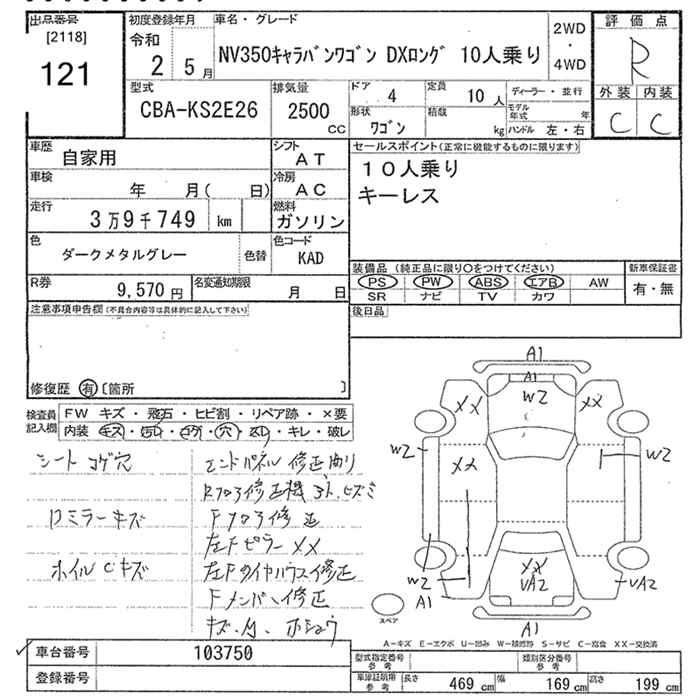 出品番号
[2118]
121
初度登録年月
令和
2 5月
車名・グレード
NV350キャラバンワゴン DXロング 10人乗り
2WD
・
4WD
評価点
R
外装 内装
C C
型式
CBA-KS2E26
排気量
2500
cc
ドア
4
定員
10人
ディーラー・並行
形状
ワゴン
積載
kg
モデル年式 年
ハンドル 左・右
車歴
自家用
シフト
AT
車検
年 月( 日)
冷房
AC
走行
3万9千749 km
燃料
ガソリン
色
ダークメタルグレー
色替
色コード
KAD
R券
9,570円
名変通知期限
月 日
セールスポイント(正常に機能するものに限ります)
10人乗り
キーレス
装備品 (純正品に限り○をつけてください)
PS PW ABS エアB AW
SR ナビ TV カワ
新車保証書
有・無
後日品
注意事項申告欄(不具合内容等は具体的に記入して下さい)
修復歴 有 [箇所 ]
検査員記入欄
FW キズ・飛石・ヒビ割・リペア跡・×要
内装 キズ・ヨゴレ・コゲ・穴・スレ・キレ・破レ
シート コゲ穴
Dミラーキズ
ホイルCキズ
エンドパネル 修正有り
Rフロア修正機
Fフロア修正
左Fピラー XX
左Fタイヤハウス修正
Fメンバー修正
A1
A1
W2
XX
XX
W2
W2
XX
XX
VA2
W2
A1
VA2
A1
スペア
A-キズ E-エクボ U-凹み W-補修跡 S-サビ C-腐食 XX-交換済
車台番号
103750
登録番号
型式指定番号
参考
類別区分番号
参考
車庫証明用
参考
長さ 469 cm
幅 169 cm
高さ 199 cm